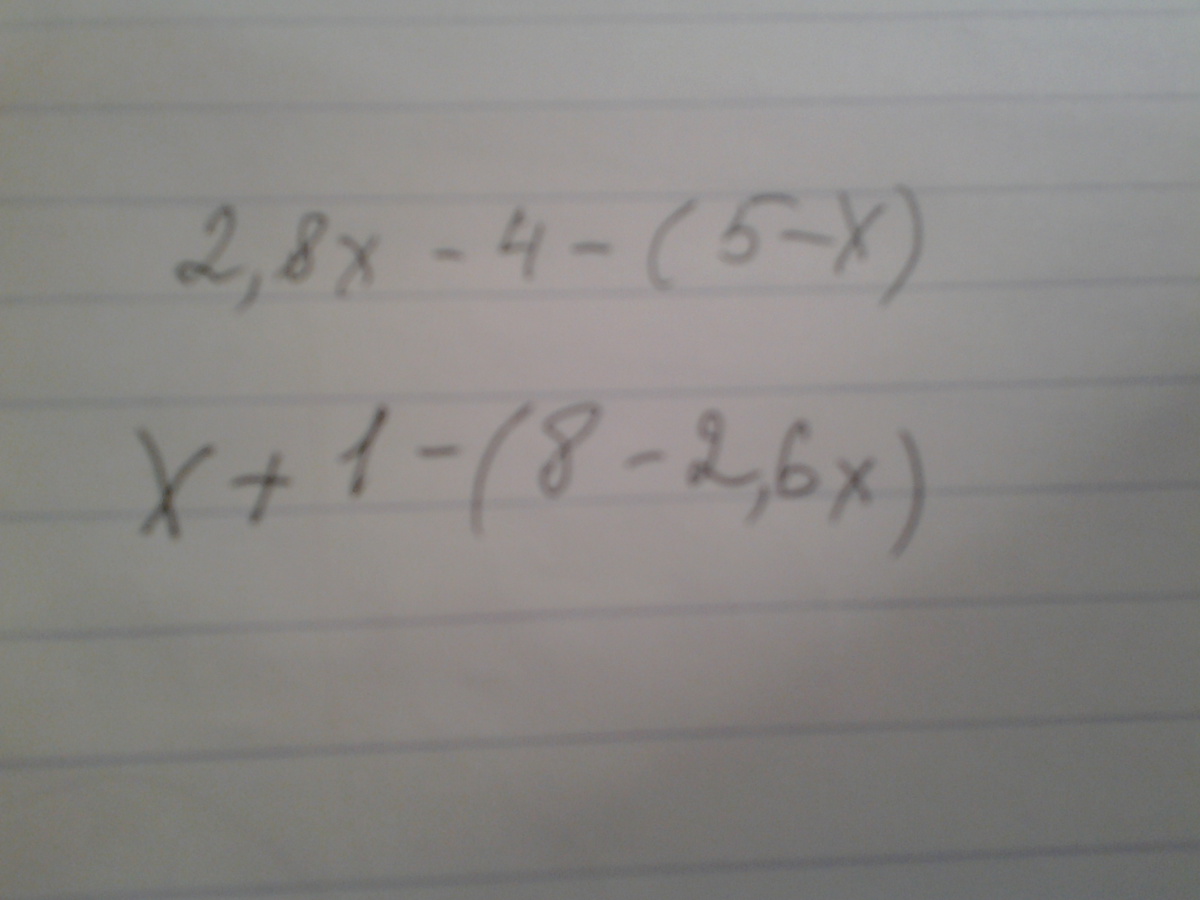 2,8x - 4 - (5 - x)
x + 1 - (8 - 2,6x)